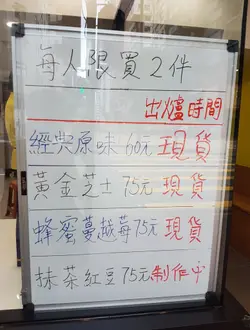 每人限買2件
出爐時間
經典原味60元現貨
黃金芝士75元現貨
蜂蜜蔓越莓75元現貨
抹茶紅豆75元制作中